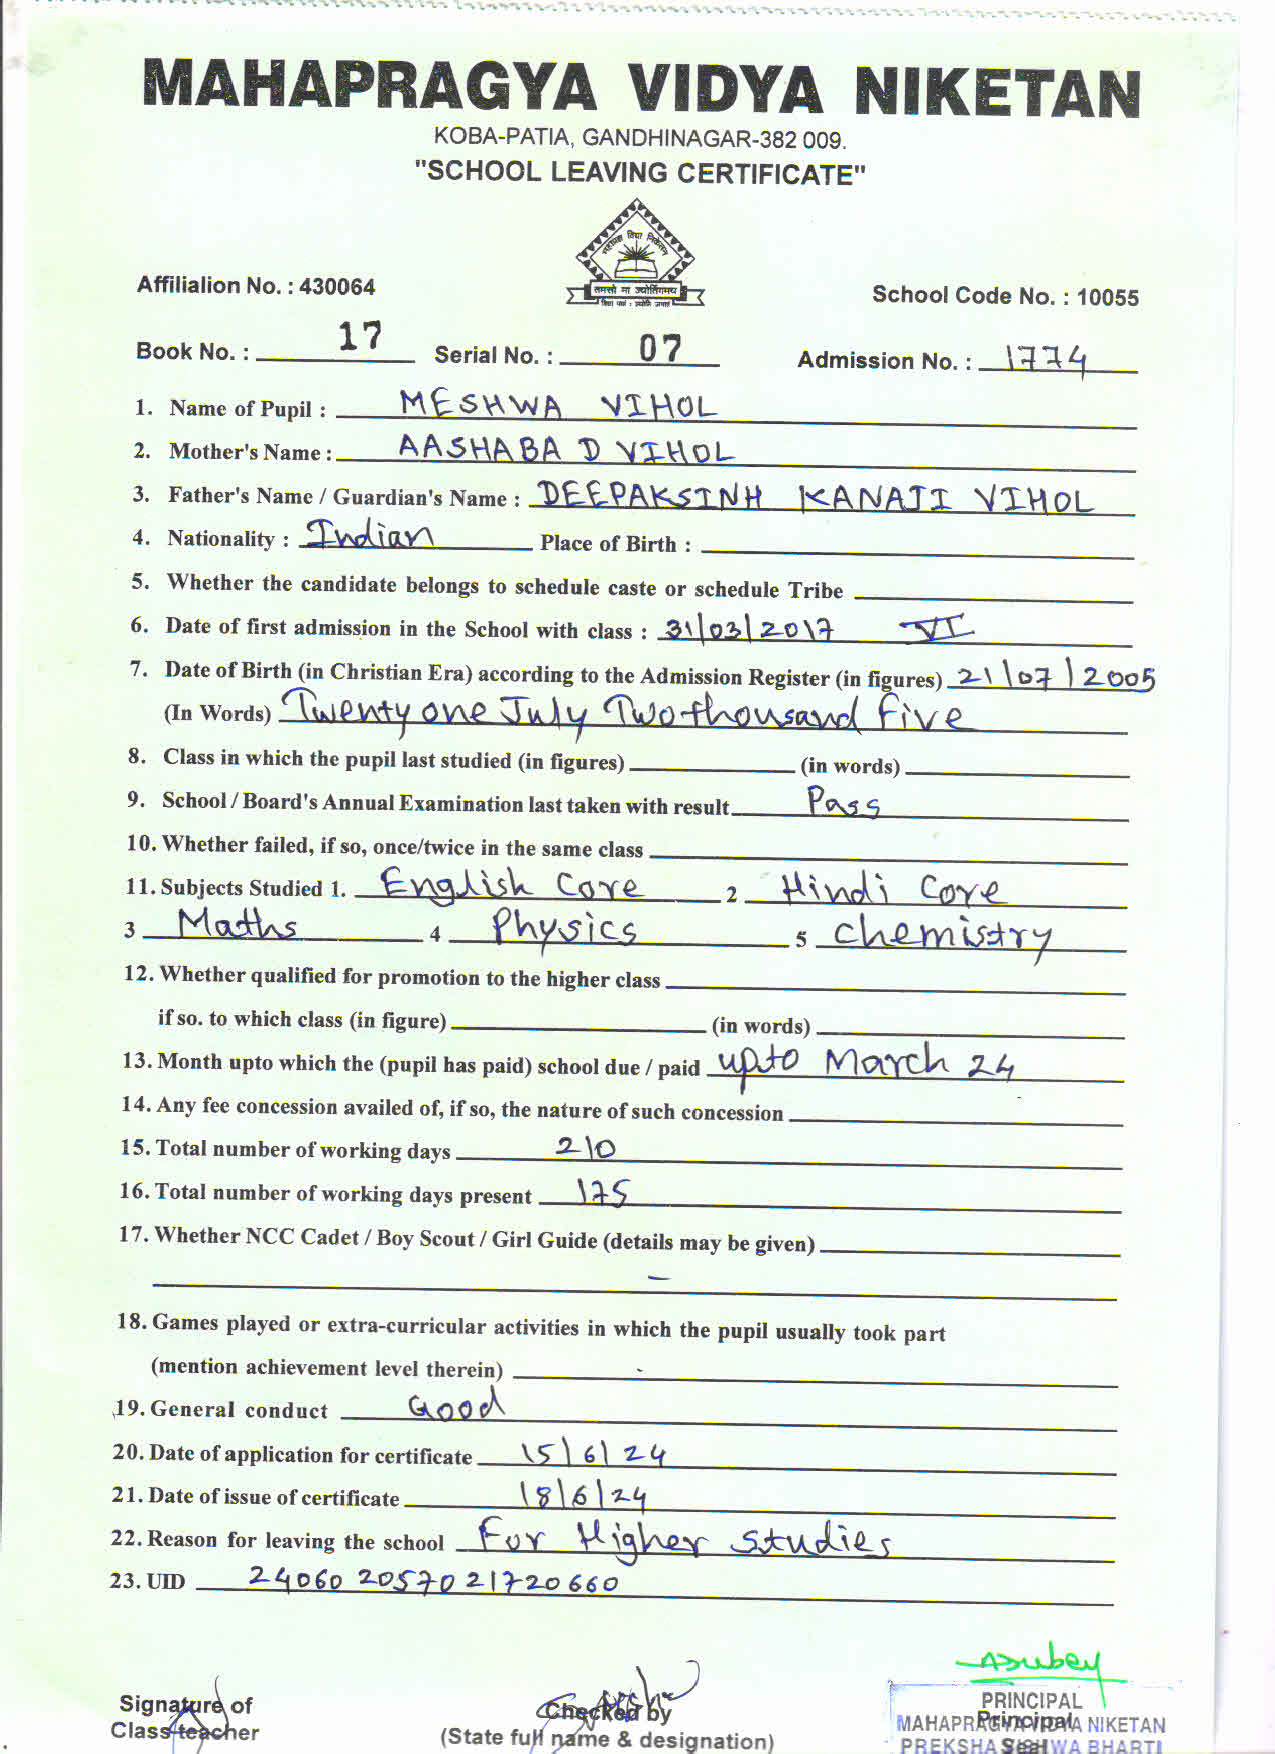 MAHAPRAGYA VIDYA NIKETAN
KOBA-PATIA, GANDHINAGAR-382 009.
"SCHOOL LEAVING CERTIFICATE"
महाप्रज्ञ विद्या निकेतन
तमसो मा ज्योतिर्गमय
Affilialion No. : 430064
School Code No. : 10055
Book No. : 17 Serial No. : 07 Admission No. : 1774
1. Name of Pupil : MESHWA VIHOL
2. Mother's Name : AASHABA D VIHOL
3. Father's Name / Guardian's Name : DEEPAKSINH KANAJI VIHOL
4. Nationality : Indian Place of Birth :
5. Whether the candidate belongs to schedule caste or schedule Tribe
6. Date of first admission in the School with class : 31/03/2017 VI
7. Date of Birth (in Christian Era) according to the Admission Register (in figures) 21/07/2005
(In Words) Twenty one July Two thousand five
8. Class in which the pupil last studied (in figures) (in words)
9. School / Board's Annual Examination last taken with result Pass
10. Whether failed, if so, once/twice in the same class
11. Subjects Studied 1. English Core 2 Hindi Core
3 Maths 4 Physics 5 Chemistry
12. Whether qualified for promotion to the higher class
if so. to which class (in figure) (in words)
13. Month upto which the (pupil has paid) school due / paid upto March 24
14. Any fee concession availed of, if so, the nature of such concession
15. Total number of working days 210
16. Total number of working days present 175
17. Whether NCC Cadet / Boy Scout / Girl Guide (details may be given)
18. Games played or extra-curricular activities in which the pupil usually took part
(mention achievement level therein)
19. General conduct Good
20. Date of application for certificate 15/6/24
21. Date of issue of certificate 18/6/24
22. Reason for leaving the school For Higher Studies
23. UID 24060 20570 21720660
ADubey
Signature of
Class teacher
Checked by
(State full name & designation)
PRINCIPAL
Principal
MAHAPRAGYA VIDYA NIKETAN
Seal
PREKSHA VISHWA BHARTI